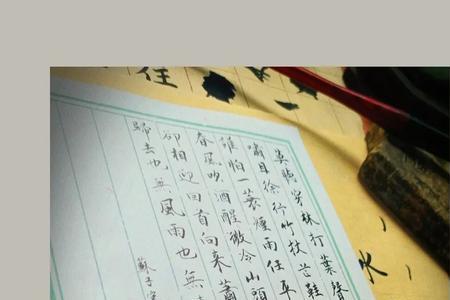 莫聽穿林打葉聲
嘯且徐行竹杖芒鞋
誰怕一蓑煙雨任平
春風吹酒醒微冷山頭
卻相迎回首向來蕭
歸去也無風雨也無
蘇子
水